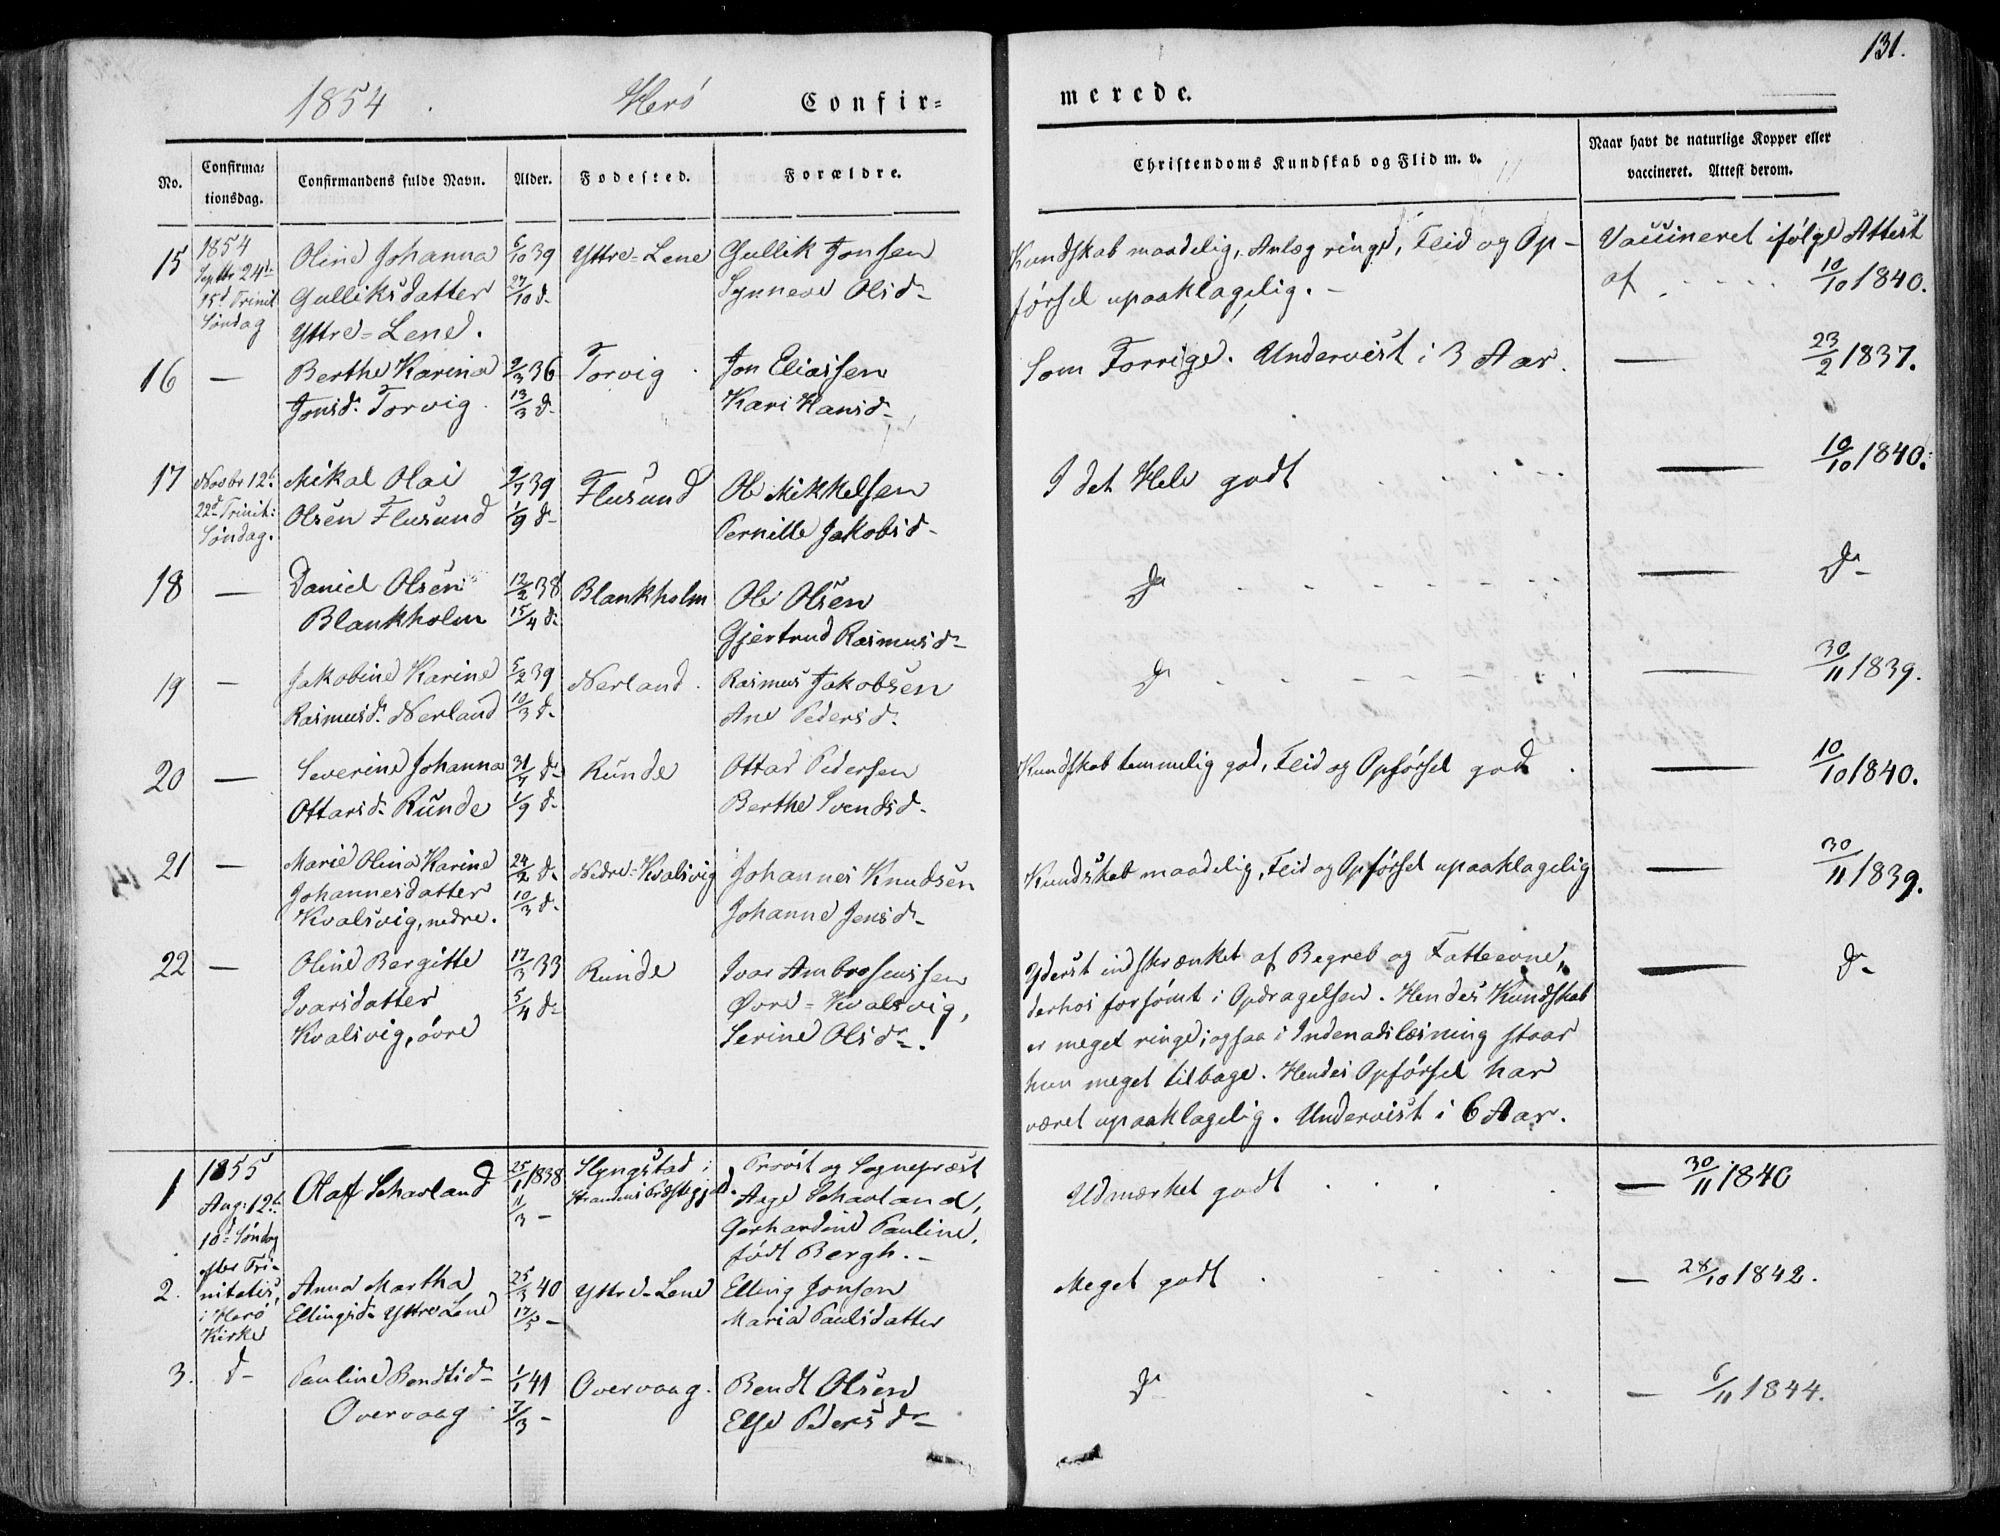 131.
1854. Herö Confir-
merede.
No.
Confirma-
tionsdag.
Confirmandens fulde Navn.
Alder.
Fødested.
Forældre.
Christendoms Kundskab og Flid m. v.
Naar havt de naturlige Kopper eller
vaccineret. Attest derom.
15
1854
Septbr 24de
15d Trinit
Søndag
Oline Johanna
Gulliksdatter
Yttre=Lene.
6/10 39
27/10 d-
Yttre-Lene
Gullik Jonsen
Synneve Olsd-
Kundskab maadelig, Anlæg ringe, Flid og Op-
førsel upaaklagelig. -
Vaccineret ifølge Attest
af . . . . . 10/10 1840.
16
—
Berthe Karina
Jonsd. Torvig
9/3 36
13/3 d-
Torvig
Jon Eliassen
Kari Hansd-
Som Forrige. Undervist i 3 Aar.
— 23/2 1837.
17
Novbr 12t
22d Trinit:
Søndag.
Mikal Olai
Olsen Flusund
9/7 39
1/9 d-
Flusund
Ole Mikkelsen
Pernille Jakobsd-
I det Hele godt
— 10/10 1840.
18
—
Daniel Olsen
Blankholm
12/2 38
15/4 d-
Blankholm
Ole Olsen
Gjertrud Rasmusd-
do
— d-
19
—
Jakobine Karine
Rasmusd. Nerland
5/2 39
10/3 d-
Nerland.
Rasmus Jakobsen
Ane Pedersd-
do
— 30/11 1839.
20
—
Severine Johanna
Ottarsd- Runde
31/7 d-
1/9 d-
Runde
Ottar Pedersen
Berthe Svendsd-
Kundskab temmelig god, Flid og Opførsel god.
— 10/10 1840.
21
—
Marie Olina Karine
Johannesdatter
Kvalsvig, nedre.
24/2 d-
10/3 d-
Nedre-Kvalsvig
Johannes Knudsen
Johanne Jensd-
Kundskab maadelig, Flid og Opførsel upaaklagelig
— 30/11 1839.
22
—
Oline Bergitte
Ivarsdatter
Kvalsvig, övre
17/3 33
5/4 d-
Runde
Ivar Ambrosiussen
Øvre-Kvalsvig,
Serine Olsd-.
Yderst indskrænket af Begreb og Fatteevne,
derhos forsømt i Opdragelsen. Hendes Kundskab
er meget ringe; ogsaa i Indenadslæsning staar
hun meget tilbage. Hendes Opførsel har
været upaaklagelig. Undervist i 6 Aar.
— d-
1
1855
Aug: 12t.
10d Søndag
efter Tri-
nitatis,
i Herö
Kirke
Olaf Schavland
25/1 1838
11/3 -
Slyngstad i
Strandens Præstegjeld.
Provst og Sognepræst
Aage Schavland,
Gerhardine Pauline,
født Bergh. -
Udmærket godt
— 30/11 1840
2.
Anna Martha
Ellingsd- Yttre Lene
25/3 40
17/5 -
Yttre-Lene
Elling Jonsen
Maria Paulsdatter
Meget godt
— 28/10 1842.
3.
d-
Pauline Bendtsd-
Overvaag
1/1 41
7/3 -
Overvaag.
Bendt Olsen
Else Pedersd-
do
— 6/11 1844.